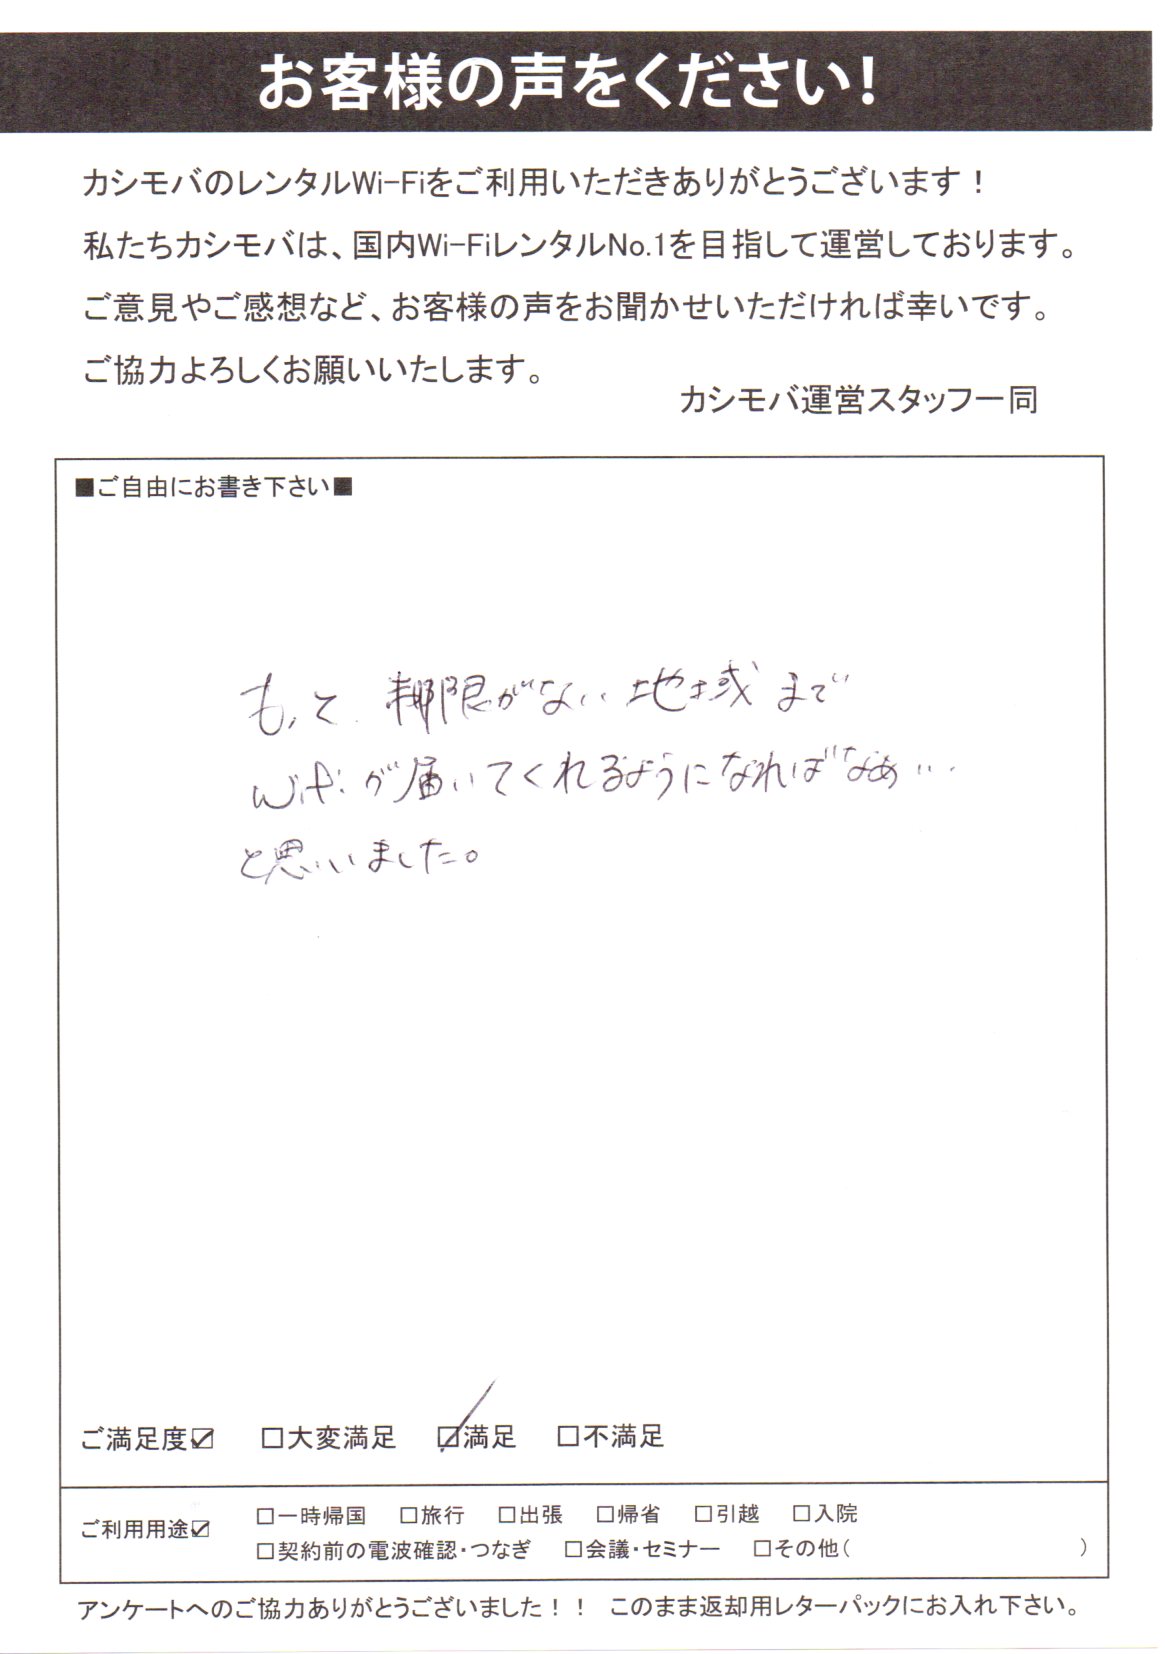 お客様の声をください!
カシモバのレンタルWi-Fiをご利用いただきありがとうございます！
私たちカシモバは、国内Wi-FiレンタルNo.1を目指して運営しております。
ご意見やご感想など、お客様の声をお聞かせいただければ幸いです。
ご協力よろしくお願いいたします。
カシモバ運営スタッフ一同
■ご自由にお書き下さい■
もっと 制限がない地域まで
Wifiが届いてくれるようになればなぁ…
と思いました。
ご満足度☑ □大変満足 ☑満足 □不満足
ご利用用途☑ □一時帰国 □旅行 □出張 □帰省 □引越 □入院
□契約前の電波確認・つなぎ □会議・セミナー □その他( )
アンケートへのご協力ありがとうございました！！ このまま返却用レターパックにお入れ下さい。